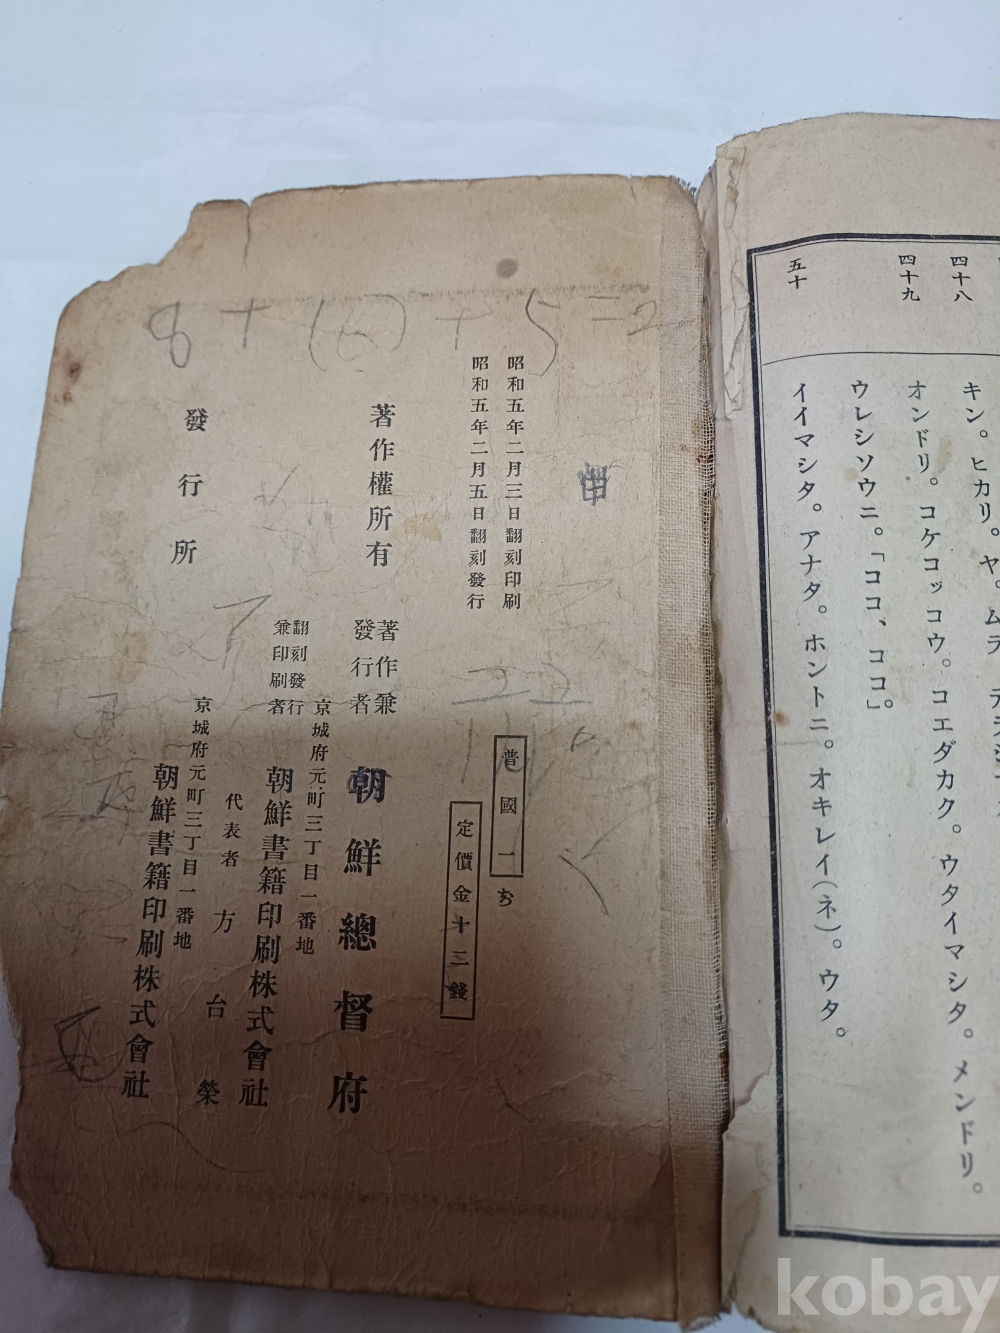 五十
四十九
四十八
キン。ヒカリ。
オンドリ。コケコッコウ。コエダカク。ウタイマシタ。メンドリ。
ウレシソウニ。「ココ、ココ」。
イイマシタ。アナタ。ホントニ。オキレイ(ネ)。ウタ。
8+(6)+5=2
昭和五年二月三日翻刻印刷
昭和五年二月五日翻刻發行
普國一
お
定價金十三錢
著作權所有
著作兼
發行者
朝鮮總督府
京城府元町三丁目一番地
翻刻發行
兼印刷者
朝鮮書籍印刷株式會社
代表者 方台榮
發行所
京城府元町三丁目一番地
朝鮮書籍印刷株式會社
kobay